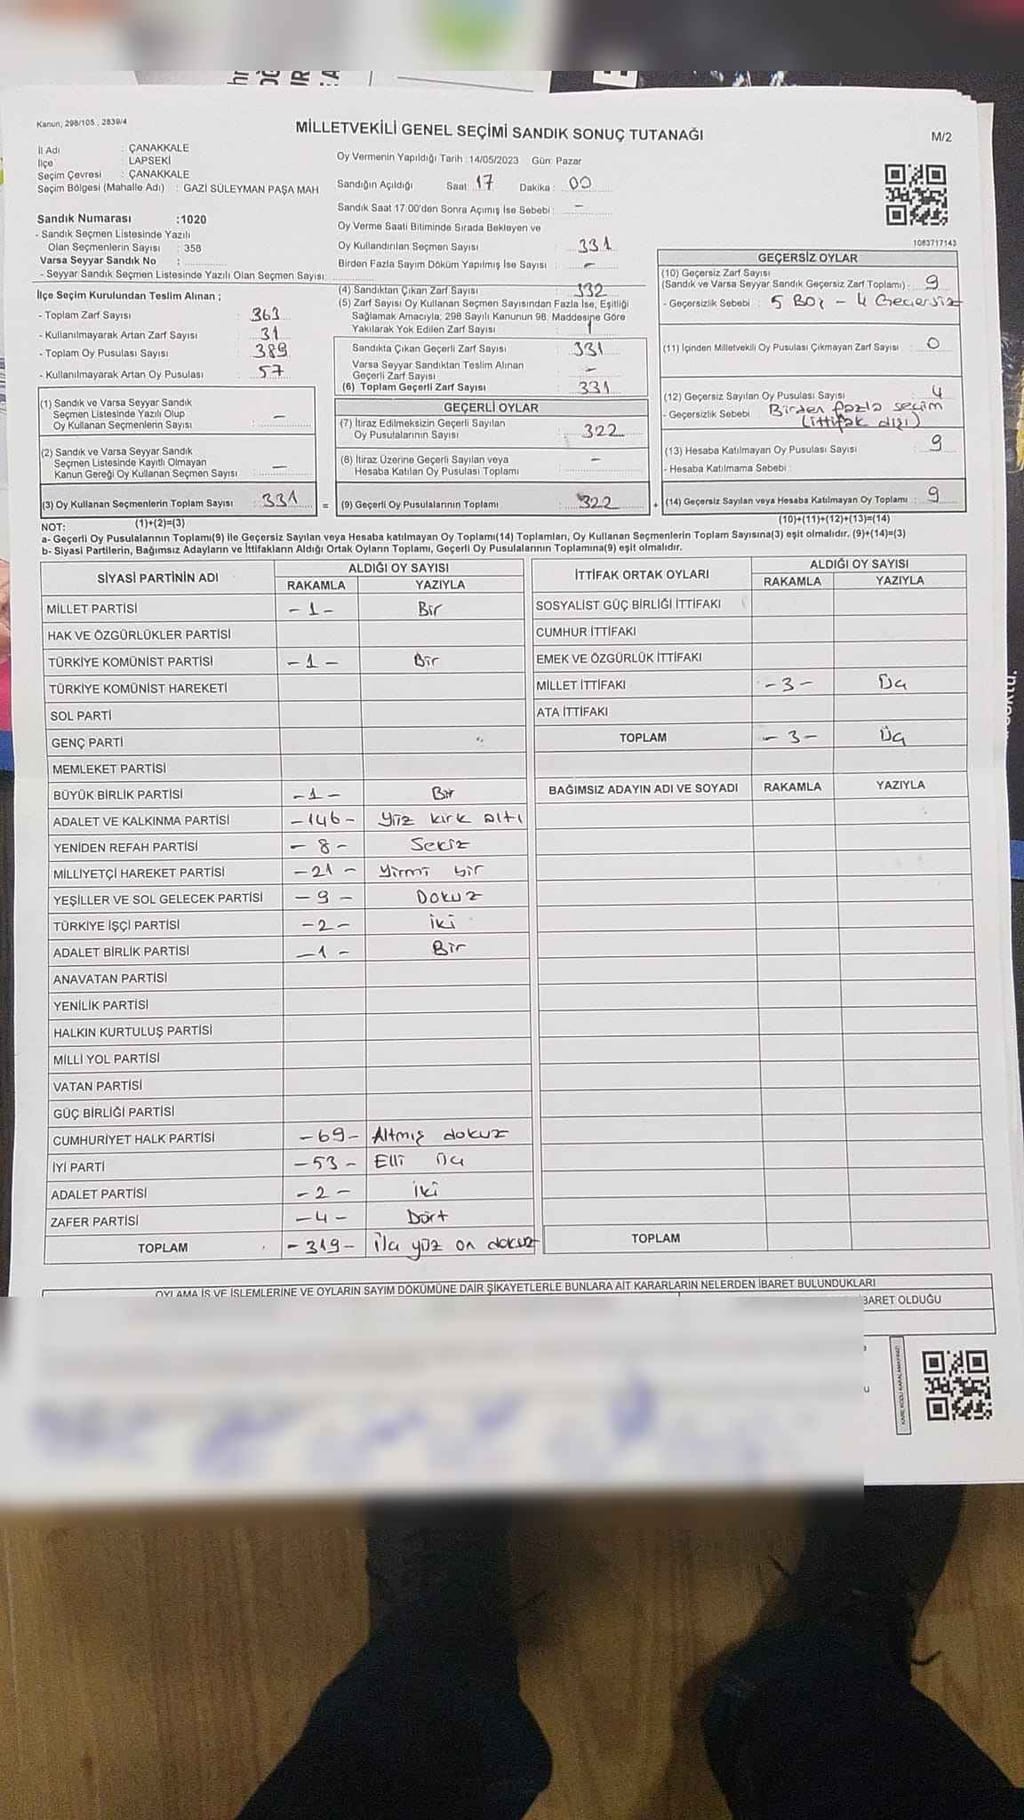 Kanun; 298/105 , 2839/4
MİLLETVEKİLİ GENEL SEÇİMİ SANDIK SONUÇ TUTANAĞI
M/2
İl Adı : ÇANAKKALE
İlçe : LAPSEKİ
Seçim Çevresi : ÇANAKKALE
Seçim Bölgesi (Mahalle Adı) : GAZİ SÜLEYMAN PAŞA MAH
Sandık Numarası :1020
- Sandık Seçmen Listesinde Yazılı
Olan Seçmenlerin Sayısı : 358
Varsa Seyyar Sandık No :
- Seyyar Sandık Seçmen Listesinde Yazılı Olan Seçmen Sayısı:
Oy Vermenin Yapıldığı Tarih : 14/05/2023 Gün: Pazar
Sandığın Açıldığı Saat 17 Dakika : 00
Sandık Saat 17:00'den Sonra Açımış İse Sebebi : -
Oy Verme Saati Bitiminde Sırada Bekleyen ve
Oy Kullandırılan Seçmen Sayısı 331
Birden Fazla Sayım Döküm Yapılmış İse Sayısı -
1083717143
İlçe Seçim Kurulundan Teslim Alınan ;
- Toplam Zarf Sayısı 363
- Kullanılmayarak Artan Zarf Sayısı 31
- Toplam Oy Pusulası Sayısı 389
- Kullanılmayarak Artan Oy Pusulası 57
(1) Sandık ve Varsa Seyyar Sandık
Seçmen Listesinde Yazılı Olup
Oy Kullanan Seçmenlerin Sayısı : -
(2) Sandık ve Varsa Seyyar Sandık
Seçmen Listesinde Kayıtlı Olmayan
Kanun Gereği Oy Kullanan Seçmen Sayısı : -
(3) Oy Kullanan Seçmenlerin Toplam Sayısı : 331 =
(1)+(2)=(3)
(4) Sandıktan Çıkan Zarf Sayısı 332
(5) Zarf Sayısı Oy Kullanan Seçmen Sayısından Fazla İse, Eşitliği
Sağlamak Amacıyla; 298 Sayılı Kanunun 98. Maddesine Göre
Yakılarak Yok Edilen Zarf Sayısı 1
Sandıkta Çıkan Geçerli Zarf Sayısı 331
Varsa Seyyar Sandıktan Teslim Alınan
Geçerli Zarf Sayısı -
(6) Toplam Geçerli Zarf Sayısı 331
GEÇERLİ OYLAR
(7) İtiraz Edilmeksizin Geçerli Sayılan
Oy Pusulalarının Sayısı : 322
(8) İtiraz Üzerine Geçerli Sayılan veya
Hesaba Katılan Oy Pusulası Toplamı : -
(9) Geçerli Oy Pusulalarının Toplamı : 322 +
GEÇERSİZ OYLAR
(10) Geçersiz Zarf Sayısı
(Sandık ve Varsa Seyyar Sandık Geçersiz Zarf Toplamı) : 9
- Geçersizlik Sebebi : 5 Boş - 4 Geçersiz
(11) İçinden Milletvekili Oy Pusulası Çıkmayan Zarf Sayısı : 0
(12) Geçersiz Sayılan Oy Pusulası Sayısı : 4
- Geçersizlik Sebebi : Birden fazla seçim
(ittifak dışı)
(13) Hesaba Katılmayan Oy Pusulası Sayısı : 9
- Hesaba Katılmama Sebebi :
(14) Geçersiz Sayılan veya Hesaba Katılmayan Oy Toplamı : 9
(10)+(11)+(12)+(13)=(14)
NOT:
a- Geçerli Oy Pusulalarının Toplamı(9) ile Geçersiz Sayılan veya Hesaba katılmayan Oy Toplamı(14) Toplamları, Oy Kullanan Seçmenlerin Toplam Sayısına(3) eşit olmalıdır. (9)+(14)=(3)
b- Siyasi Partilerin, Bağımsız Adayların ve İttifakların Aldığı Ortak Oyların Toplamı, Geçerli Oy Pusulalarının Toplamına(9) eşit olmalıdır.
SİYASİ PARTİNİN ADI ALDIĞI OY SAYISI
RAKAMLA YAZIYLA
MİLLET PARTİSİ -1- Bir
HAK VE ÖZGÜRLÜKLER PARTİSİ
TÜRKİYE KOMÜNİST PARTİSİ -1- Bir
TÜRKİYE KOMÜNİST HAREKETİ
SOL PARTİ
GENÇ PARTİ
MEMLEKET PARTİSİ
BÜYÜK BİRLİK PARTİSİ -1- Bir
ADALET VE KALKINMA PARTİSİ -146- Yüz kırk altı
YENİDEN REFAH PARTİSİ -8- Sekiz
MİLLİYETÇİ HAREKET PARTİSİ -21- Yirmi bir
YEŞİLLER VE SOL GELECEK PARTİSİ -9- Dokuz
TÜRKİYE İŞÇİ PARTİSİ -2- iki
ADALET BİRLİK PARTİSİ -1- Bir
ANAVATAN PARTİSİ
YENİLİK PARTİSİ
HALKIN KURTULUŞ PARTİSİ
MİLLİ YOL PARTİSİ
VATAN PARTİSİ
GÜÇ BİRLİĞİ PARTİSİ
CUMHURİYET HALK PARTİSİ -69- Altmış dokuz
İYİ PARTİ -53- Elli üç
ADALET PARTİSİ -2- iki
ZAFER PARTİSİ -4- Dört
TOPLAM -319- Üç yüz on dokuz
İTTİFAK ORTAK OYLARI ALDIĞI OY SAYISI
RAKAMLA YAZIYLA
SOSYALİST GÜÇ BİRLİĞİ İTTİFAKI
CUMHUR İTTİFAKI
EMEK VE ÖZGÜRLÜK İTTİFAKI
MİLLET İTTİFAKI -3- Üç
ATA İTTİFAKI
TOPLAM -3- Üç
BAĞIMSIZ ADAYIN ADI VE SOYADI RAKAMLA YAZIYLA
TOPLAM
OYLAMA İŞ VE İŞLEMLERİNE VE OYLARIN SAYIM DÖKÜMÜNE DAİR ŞİKAYETLERLE BUNLARA AİT KARARLARIN NELERDEN İBARET BULUNDUKLARI
BARET OLDUĞU